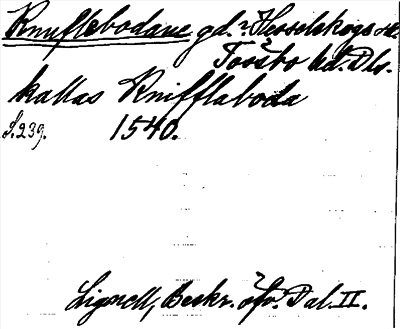 Knuflebodane gd. i Hesselskogs sn.
Tössbo hd. Dls.
kallas Knifflaboda
S. 239. 1540.
Lignell, Beskr. öfv. Dal. II.